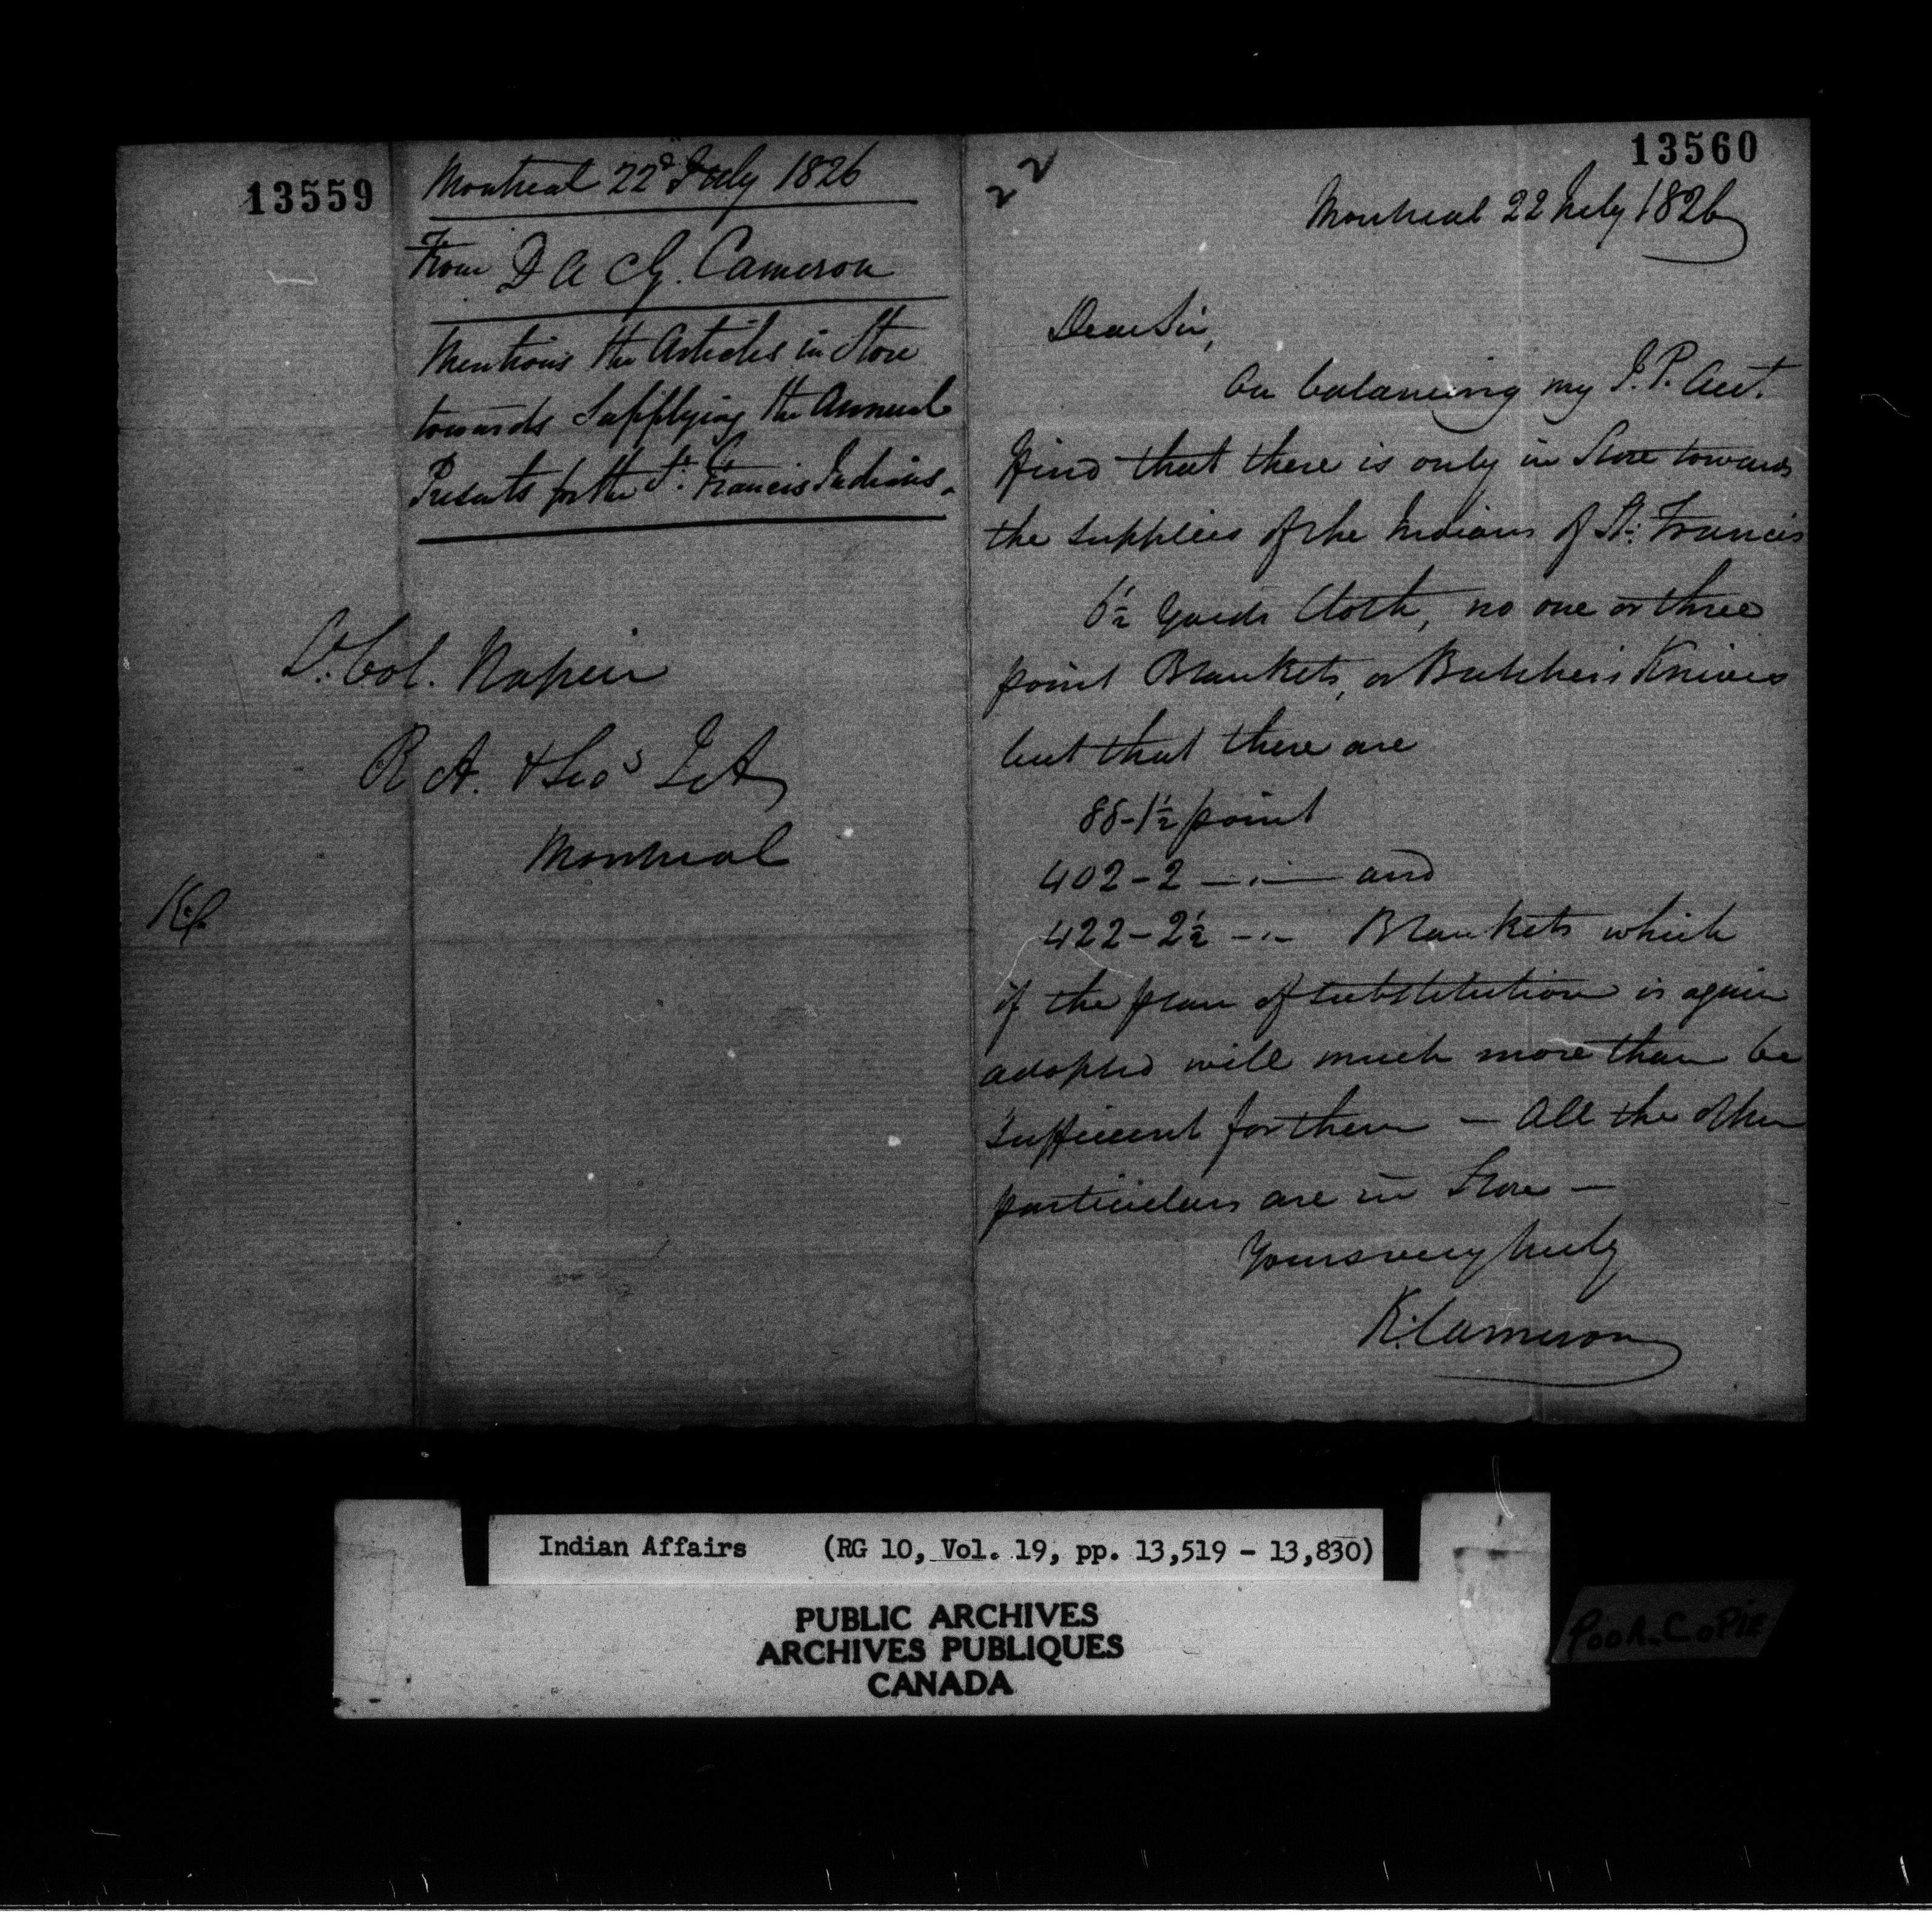 13559
Montreal 22d July 1826
From D A C G. Cameron
Mentions the Articles in Store
towards Supplying the Annual
Presents for the St. Francis Indians.
Lt. Col. Napier
R A. & Secy I A
Montreal
22
13560
Montreal 22 July 1826
Dear Sir,
On balancing my I. P. Acct.
I find that there is only in Store towards
the supplies of the Indians of St. Francis
6½ Yards Cloth, no one or three
point Blankets, or Butchers Knives
but that there are
88-1½ point
402-2 —·— and
422-2½ -·- Blankets which
if the plan of substitution is again
adopted will much more than be
sufficient for them — All the other
particulars are in Store —
Yours very truly
K. Cameron
Indian Affairs (RG 10, Vol. 19, pp. 13,519 - 13,830)
PUBLIC ARCHIVES
ARCHIVES PUBLIQUES
CANADA
POOR COPIE